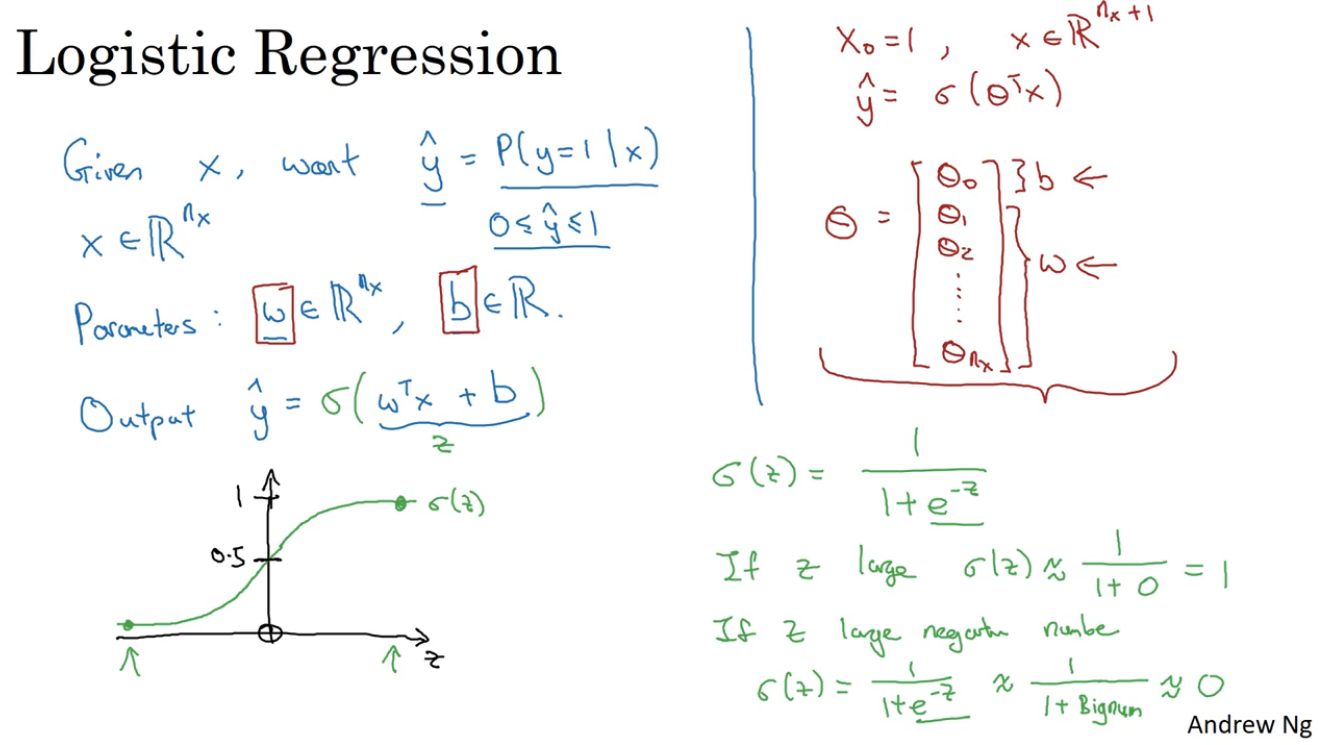 Logistic Regression
Given x, want ŷ = P(y=1|x)
x ∈ ℝ^{n_x}
0 ≤ ŷ ≤ 1
Parameters: w ∈ ℝ^{n_x}, b ∈ ℝ.
Output ŷ = σ(wᵀx + b)
z
1
σ(z)
0.5
z
x₀ = 1, x ∈ ℝ^{n_x+1}
ŷ = σ(θᵀx)
θ = [θ₀ } b ←
θ₁
θ₂ } w ←
⋮
θ_{n_x}]
σ(z) = 1/(1+e^{-z})
If z large σ(z) ≈ 1/(1+0) = 1
If z large negative number
σ(z) = 1/(1+e^{-z}) ≈ 1/(1+Bignum) ≈ 0
Andrew Ng